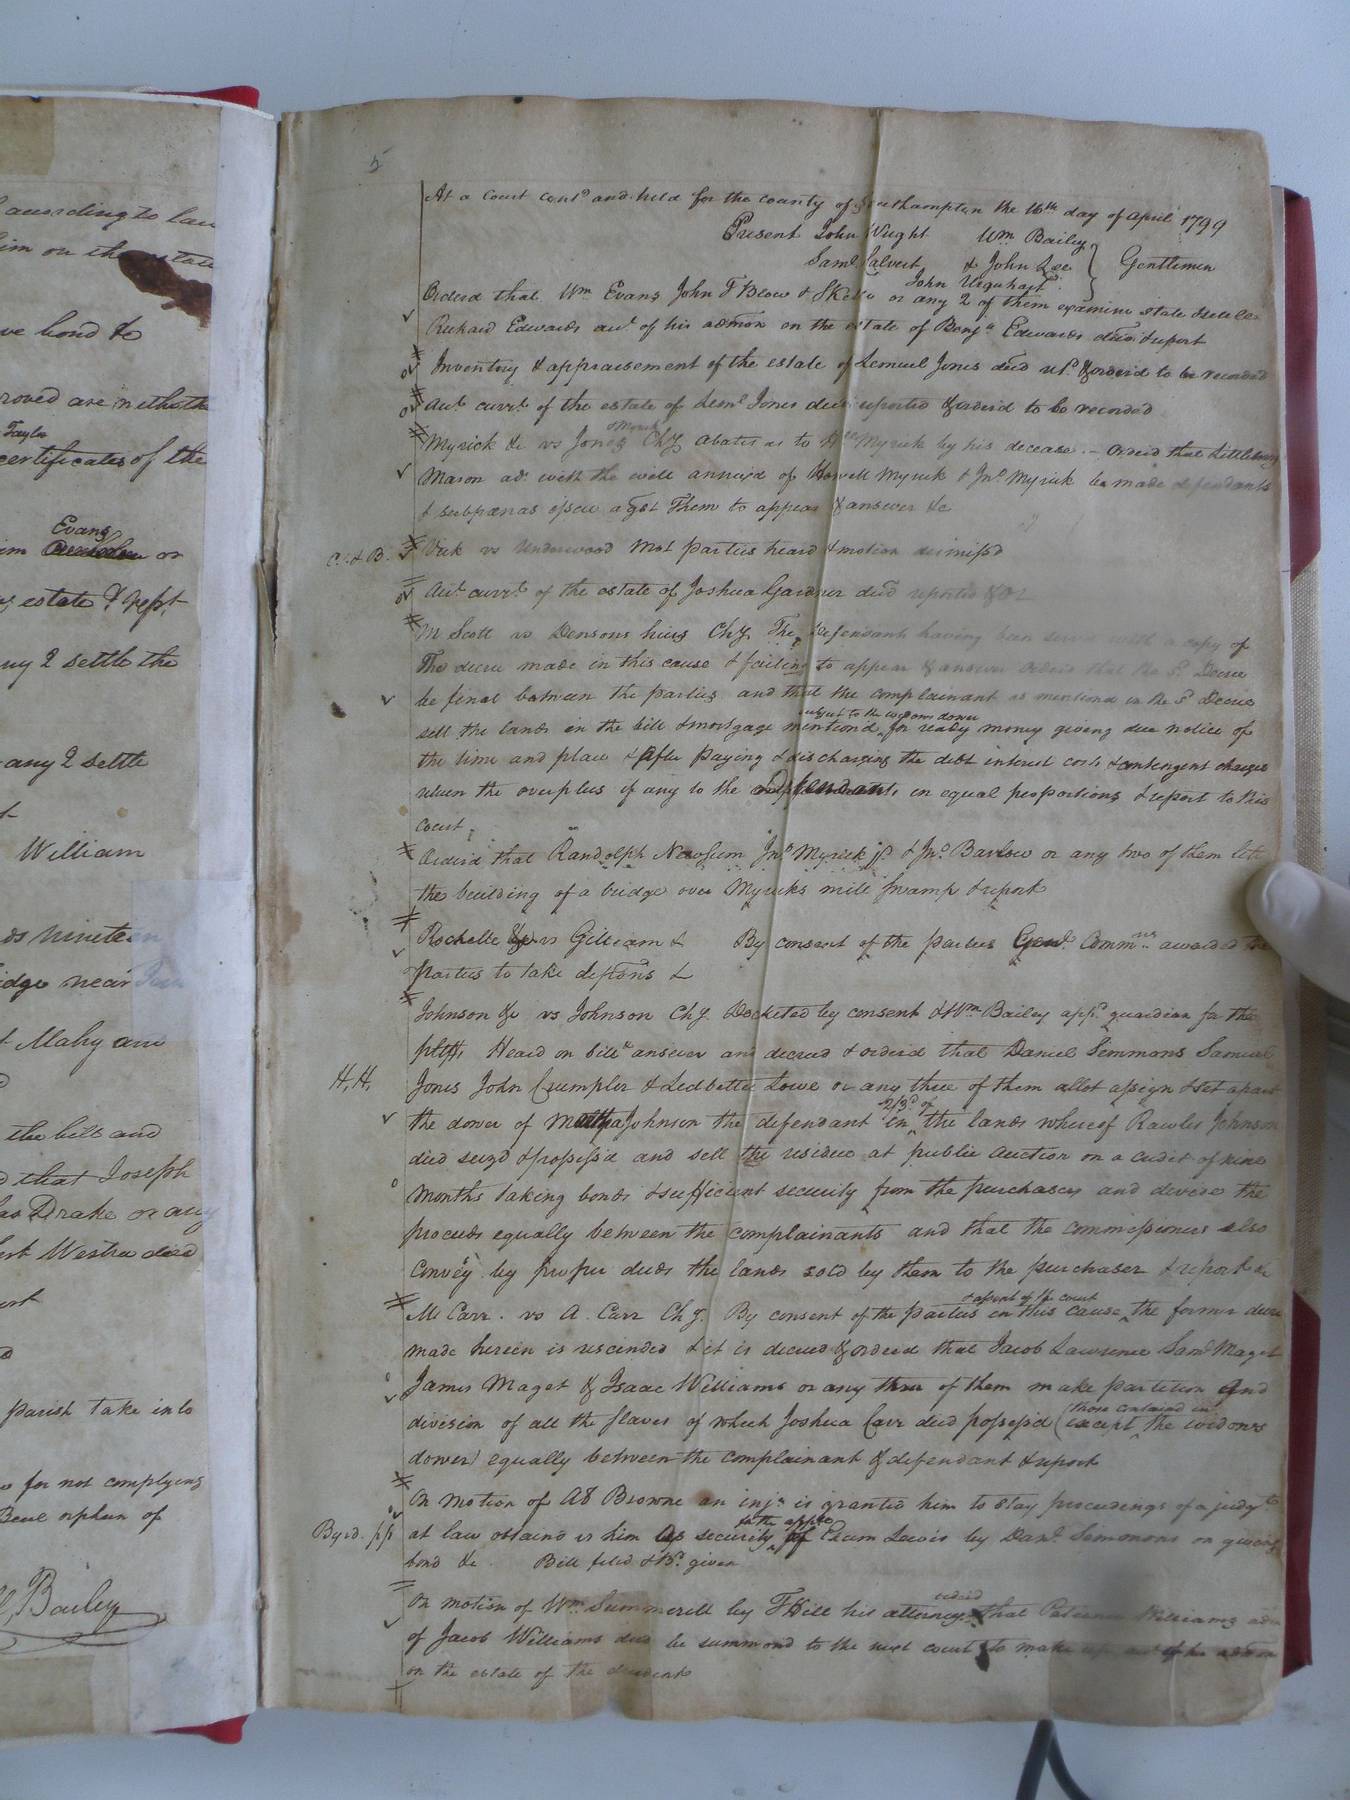 according to law
him on the estate
ve bond &c
roved are neithe the
Taylor
certificates of the
Evans
im or
estate & rept
any 2 settle the
any 2 settle
William
ds nineteen
idge near
Mahy and
the bill and
d that Joseph
Drake or any
Westra decd
parish take into
for not complying
orphan of
Bailey
5
At a court contd and held for the county of Southampton the 16th day of April 1799
Present John Wright Wm Bailey
Saml Calvert & John Lee Gentlemen
John Urquhart
Orderd that Wm Evans John T Blow & S Kello or any 2 of them examine state & settle
Richard Edwards acct of his admon on the estate of Benja Edwards decd & report
Inventory & appraisement of the estate of Lemuel Jones decd rtd & orderd to be recorded
Act currt of the estate of Leml Jones decd reported & orderd to be recorded
Myrick &c vs Jones Chy abates as to Myrick by his decease. - Orderd that Littlebury
& Myrick
Mason ad. with the will annexd of Howell Myrick & Jno Myrick be made defendants
& subpœnas issue agst them to appear & answer &c
C. & B. Vick vs Underwood Mot parties heard & motion dismissd
Act currt of the estate of Joshua Gardner decd reported & OR
M Scott vs Densons heirs Chy. The defendants having been served with a copy of
The decree made in this cause & failing to appear & answer orderd that the sd Decree
be final between the parties and that the complainant as mentiond in the sd Decree
subject to the widows dower
sell the lands in the bill & mortgage mentiond for ready money giving due notice of
the time and place & After paying & discharging the debt interest costs & contingent charges
return the overplus if any to the Defendants in equal proportions & report to this
court.
Orderd that Randolph Newsum Jno Myrick & Jno Barlow or any two of them let
the building of a bridge over Myricks mill swamp & report
Rochelle &c vs Gilliam & By consent of the parties Genl Commns awarded the
parties to take depons &
Johnson &c vs Johnson Chy. Docketed by consent & Wm Bailey appd guardian for the
pltffs Heard on bill & answer and decreed & orderd that Daniel Simmons Samuel
H.H. Jones John Crumpler & Ledbetter Lowe or any three of them allot assign & set apart
2/3ds of
the dower of Martha Johnson the defendant in the lands whereof Rawles Johnson
died seizd & possessd and sell the residue at public auction on a credit of nine
months taking bonds & sufficient security from the purchasers and divide the
proceeds equally between the complainants and that the commissioners also
convey by proper deeds the lands sold by them to the purchaser & report &c
& assent of the court
M Carr. vs A. Carr Chy. By consent of the parties in this cause the former decree
made herein is rescinded & it is decreed & orderd that Jacob Lawrence Saml Maget
James Maget & Isaac Williams or any three of them make partition and
those contained in
division of all the slaves of which Joshua Carr died possessd (except the widows
dower) equally between the complainant & defendant & report
On motion of AB Browne an injn is granted him to stay proceedings of a judgt
to the appeal
Byrd. at law obtaind vs him as security of Exum Lewis by Danl Simmons on giving
bond &c. Bill filed & Bd given
orderd
On motion of Wm Summerell by T Hill his attorney that Patience Williams adm
of Jacob Williams decd be summond to the next court to make up act of her admon
on the estate of the decedent